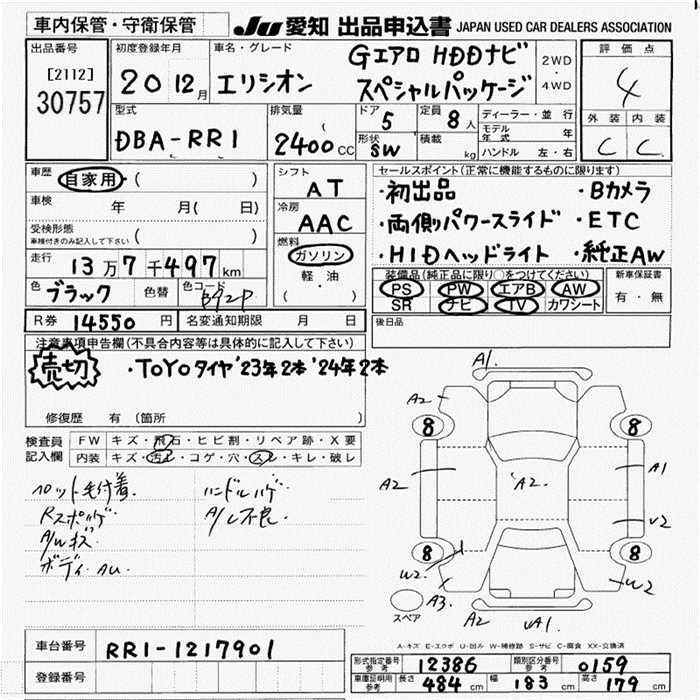 車内保管・守衛保管
JU 愛知 出品申込書 JAPAN USED CAR DEALERS ASSOCIATION
出品番号
[2112]
30757
初度登録年月
20 12月
車名・グレード
エリシオン
Gエアロ HDDナビ
スペシャルパッケージ
2WD
・
4WD
評価点
4
外装 内装
C C
型式
DBA-RR1
排気量
2400cc
ドア
5
形状
SW
定員
8人
積載
kg
ディーラー・並行
モデル年式 年
ハンドル 左・右
車歴
自家用・( )
車検 年 月( 日)
受検形態
車検付きのみ記入して下さい ( )
走行
13万7千497km
色 ブラック 色替 色コード B92P
R券 14550円 名変通知期限 月 日
シフト
AT
冷房
AAC
燃料
ガソリン
軽・油
( )
セールスポイント(正常に機能するものに限ります)
・初出品 ・Bカメラ
・両側パワースライド ・ETC
・HIDヘッドライト ・純正AW
装備品(純正品に限り○をつけてください)
PS PW エアB AW
SR ナビ TV カワシート
新車保証書
有・無
後日品
注意事項申告欄(不具合内容等は具体的に記入して下さい)
売切
・TOYOタイヤ'23年2本'24年2本
修復歴 有(箇所 )
検査員
記入欄
FW キズ・飛石・ヒビ割・リペア跡・X要
内装 キズ・汚レ・コゲ・穴・スレ・キレ・破レ
ペット毛付着. ハンドルハゲ.
Rスポハゲ. A/L不良.
A/Wキズ.
ボディ. AU.
A1.
A2
8 8
A2 'A2. A1
U2
8 8
W2 W2
A3.
スペア
A2 UA1.
A-キズ E-エクボ U-凹み W-補修跡 S-サビ C-腐食 XX-交換済
車台番号 RR1-1217901
登録番号
形式指定番号 参考 12386 類別区分番号 参考 0159
車庫証明用 参考 長さ 484cm 幅 183cm 高さ 179cm